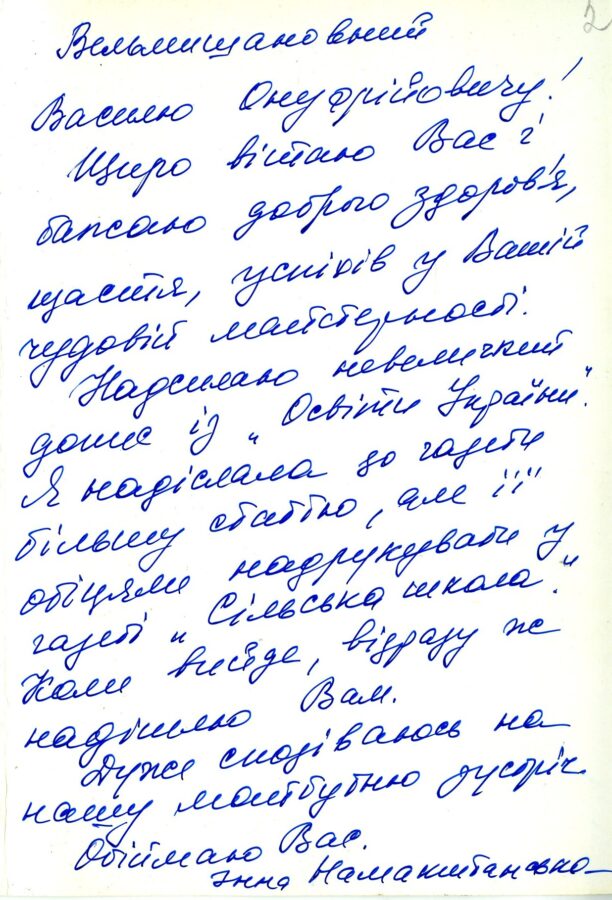 2
Вельмишановний
Василю Онуфрійовичу!
Щиро вітаю Вас і
бажаю доброго здоров'я,
щастя, успіхів у Вашій
чудовій майстерності.
Надсилаю невеличкий
допис із „Освіти України".
Я надіслала до газети
більшу статтю, але її
обіцяли надрукувати у
газеті „Сільська школа".
Коли вийде, відразу ж
надішлю Вам.
Дуже сподіваюсь на
нашу майбутню зустріч.
Обіймаю Вас.
Інна